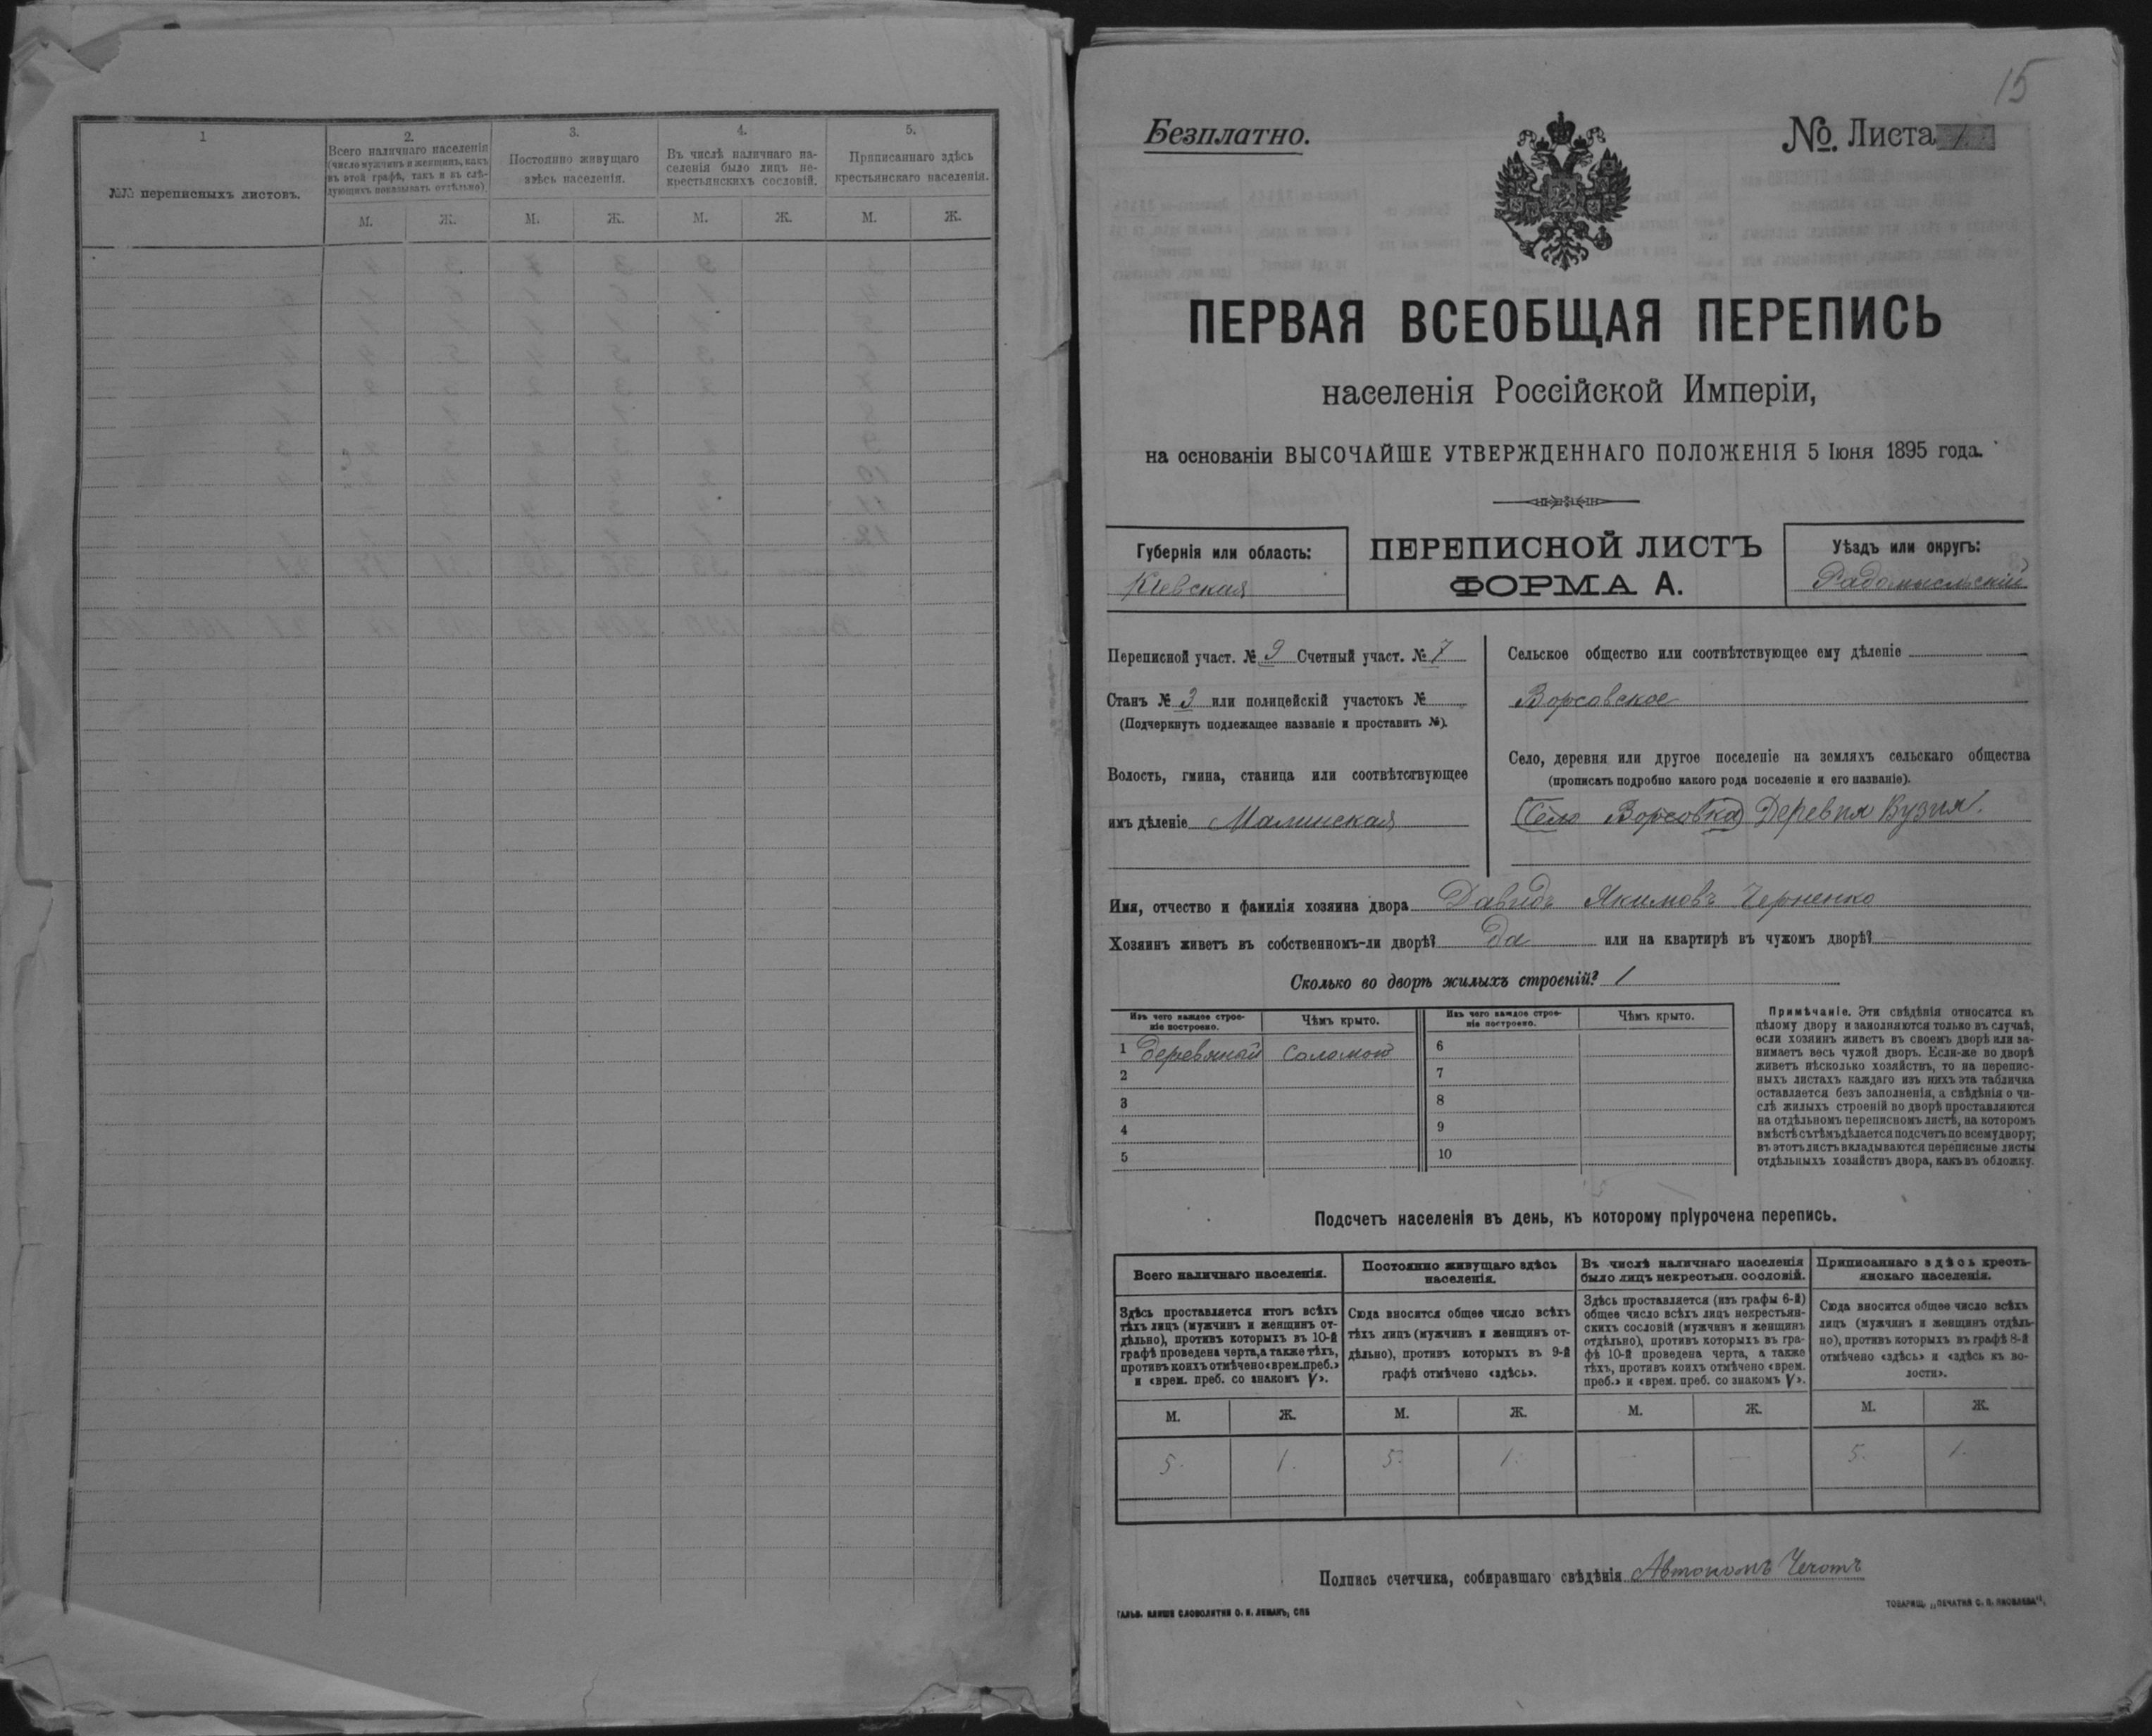 1
№№ переписныхъ листовъ.
2.
Всего наличнаго населенія
(число мужчинъ и женщинъ, какъ
въ этой графѣ, такъ и въ слѣ-
дующихъ показывать отдѣльно).
3.
Постоянно живущаго
здѣсь населенія.
4.
Въ числѣ наличнаго на-
селенія было лицъ не-
крестьянскихъ сословій.
5.
Приписаннаго здѣсь
крестьянскаго населенія.
М. Ж. М. Ж. М. Ж. М. Ж.
15
Безплатно.
№. Листа 1.
ПЕРВАЯ ВСЕОБЩАЯ ПЕРЕПИСЬ
населенія Россійской Имперіи,
на основаніи ВЫСОЧАЙШЕ УТВЕРЖДЕННАГО ПОЛОЖЕНІЯ 5 Іюня 1895 года.
Губернія или область:
Кіевская
ПЕРЕПИСНОЙ ЛИСТЪ
ФОРМА А.
Уѣздъ или округъ:
Радомысльскій
Переписной участ. № 9 Счетный участ. № 7
Станъ № 3 или полицейскій участокъ №
(Подчеркнуть подлежащее названіе и проставить №).
Волость, гмина, станица или соотвѣтствующее
имъ дѣленіе Малинская
Сельское общество или соотвѣтствующее ему дѣленіе
Ворсовское
Село, деревня или другое поселеніе на земляхъ сельскаго общества
(прописать подробно какого рода поселеніе и его названіе).
(Село Ворсовка) Деревня Вузня.
Имя, отчество и фамилія хозяина двора Давидъ Якимовъ Черненко
Хозяинъ живетъ въ собственномъ-ли дворѣ? Да или на квартирѣ въ чужомъ дворѣ? -
Сколько во дворѣ жилыхъ строеній? 1
Изъ чего каждое строе-
ніе построено.
Чѣмъ крыто.
Изъ чего каждое строе-
ніе построено.
Чѣмъ крыто.
1 деревяной соломою 6
2 7
3 8
4 9
5 10
Примѣчаніе. Эти свѣдѣнія относятся къ
цѣлому двору и заполняются только въ случаѣ,
если хозяинъ живетъ въ своемъ дворѣ или за-
нимаетъ весь чужой дворъ. Если-же во дворѣ
живетъ нѣсколько хозяйствъ, то на перепис-
ныхъ листахъ каждаго изъ нихъ эта табличка
оставляется безъ заполненія, а свѣдѣнія о чи-
слѣ жилыхъ строеній во дворѣ проставляются
на отдѣльномъ переписномъ листѣ, на которомъ
вмѣстѣ съ тѣмъ дѣлается подсчетъ по всему двору;
въ этотъ листъ вкладываются переписные листы
отдѣльныхъ хозяйствъ двора, какъ въ обложку.
Подсчетъ населенія въ день, къ которому пріурочена перепись.
Всего наличнаго населенія.
Здѣсь проставляется итогъ всѣхъ
тѣхъ лицъ (мужчинъ и женщинъ от-
дѣльно), противъ которыхъ въ 10-й
графѣ проведена черта, а также тѣхъ,
противъ коихъ отмѣчено «врем. преб.»
и «врем. преб. со знакомъ V».
Постоянно живущаго здѣсь
населенія.
Сюда вносится общее число всѣхъ
тѣхъ лицъ (мужчинъ и женщинъ от-
дѣльно), противъ которыхъ въ 9-й
графѣ отмѣчено «здѣсь».
Въ числѣ наличнаго населенія
было лицъ некрестьян. сословій.
Здѣсь проставляется (изъ графы 6-й)
общее число всѣхъ лицъ некрестьян-
скихъ сословій (мужчинъ и женщинъ
отдѣльно), противъ которыхъ въ гра-
фѣ 10-й проведена черта, а также
тѣхъ, противъ коихъ отмѣчено «врем.
преб.» и «врем. преб. со знакомъ V».
Приписаннаго здѣсь кресть-
янскаго населенія.
Сюда вносится общее число всѣхъ
лицъ (мужчинъ и женщинъ отдѣль-
но), противъ которыхъ въ графѣ 8-й
отмѣчено «здѣсь» и «здѣсь къ во-
лости».
М. Ж. М. Ж. М. Ж. М. Ж.
5. 1. 5. 1. - - 5. 1.
Подпись счетчика, собиравшаго свѣдѣнія Автономъ Чехотъ
ГАЛЬВ. КЛИШЕ СЛОВОЛИТНИ О. И. ЛЕМАНЪ, СПБ
ТОВАРИЩ. „ПЕЧАТНЯ С. П. ЯКОВЛЕВА".